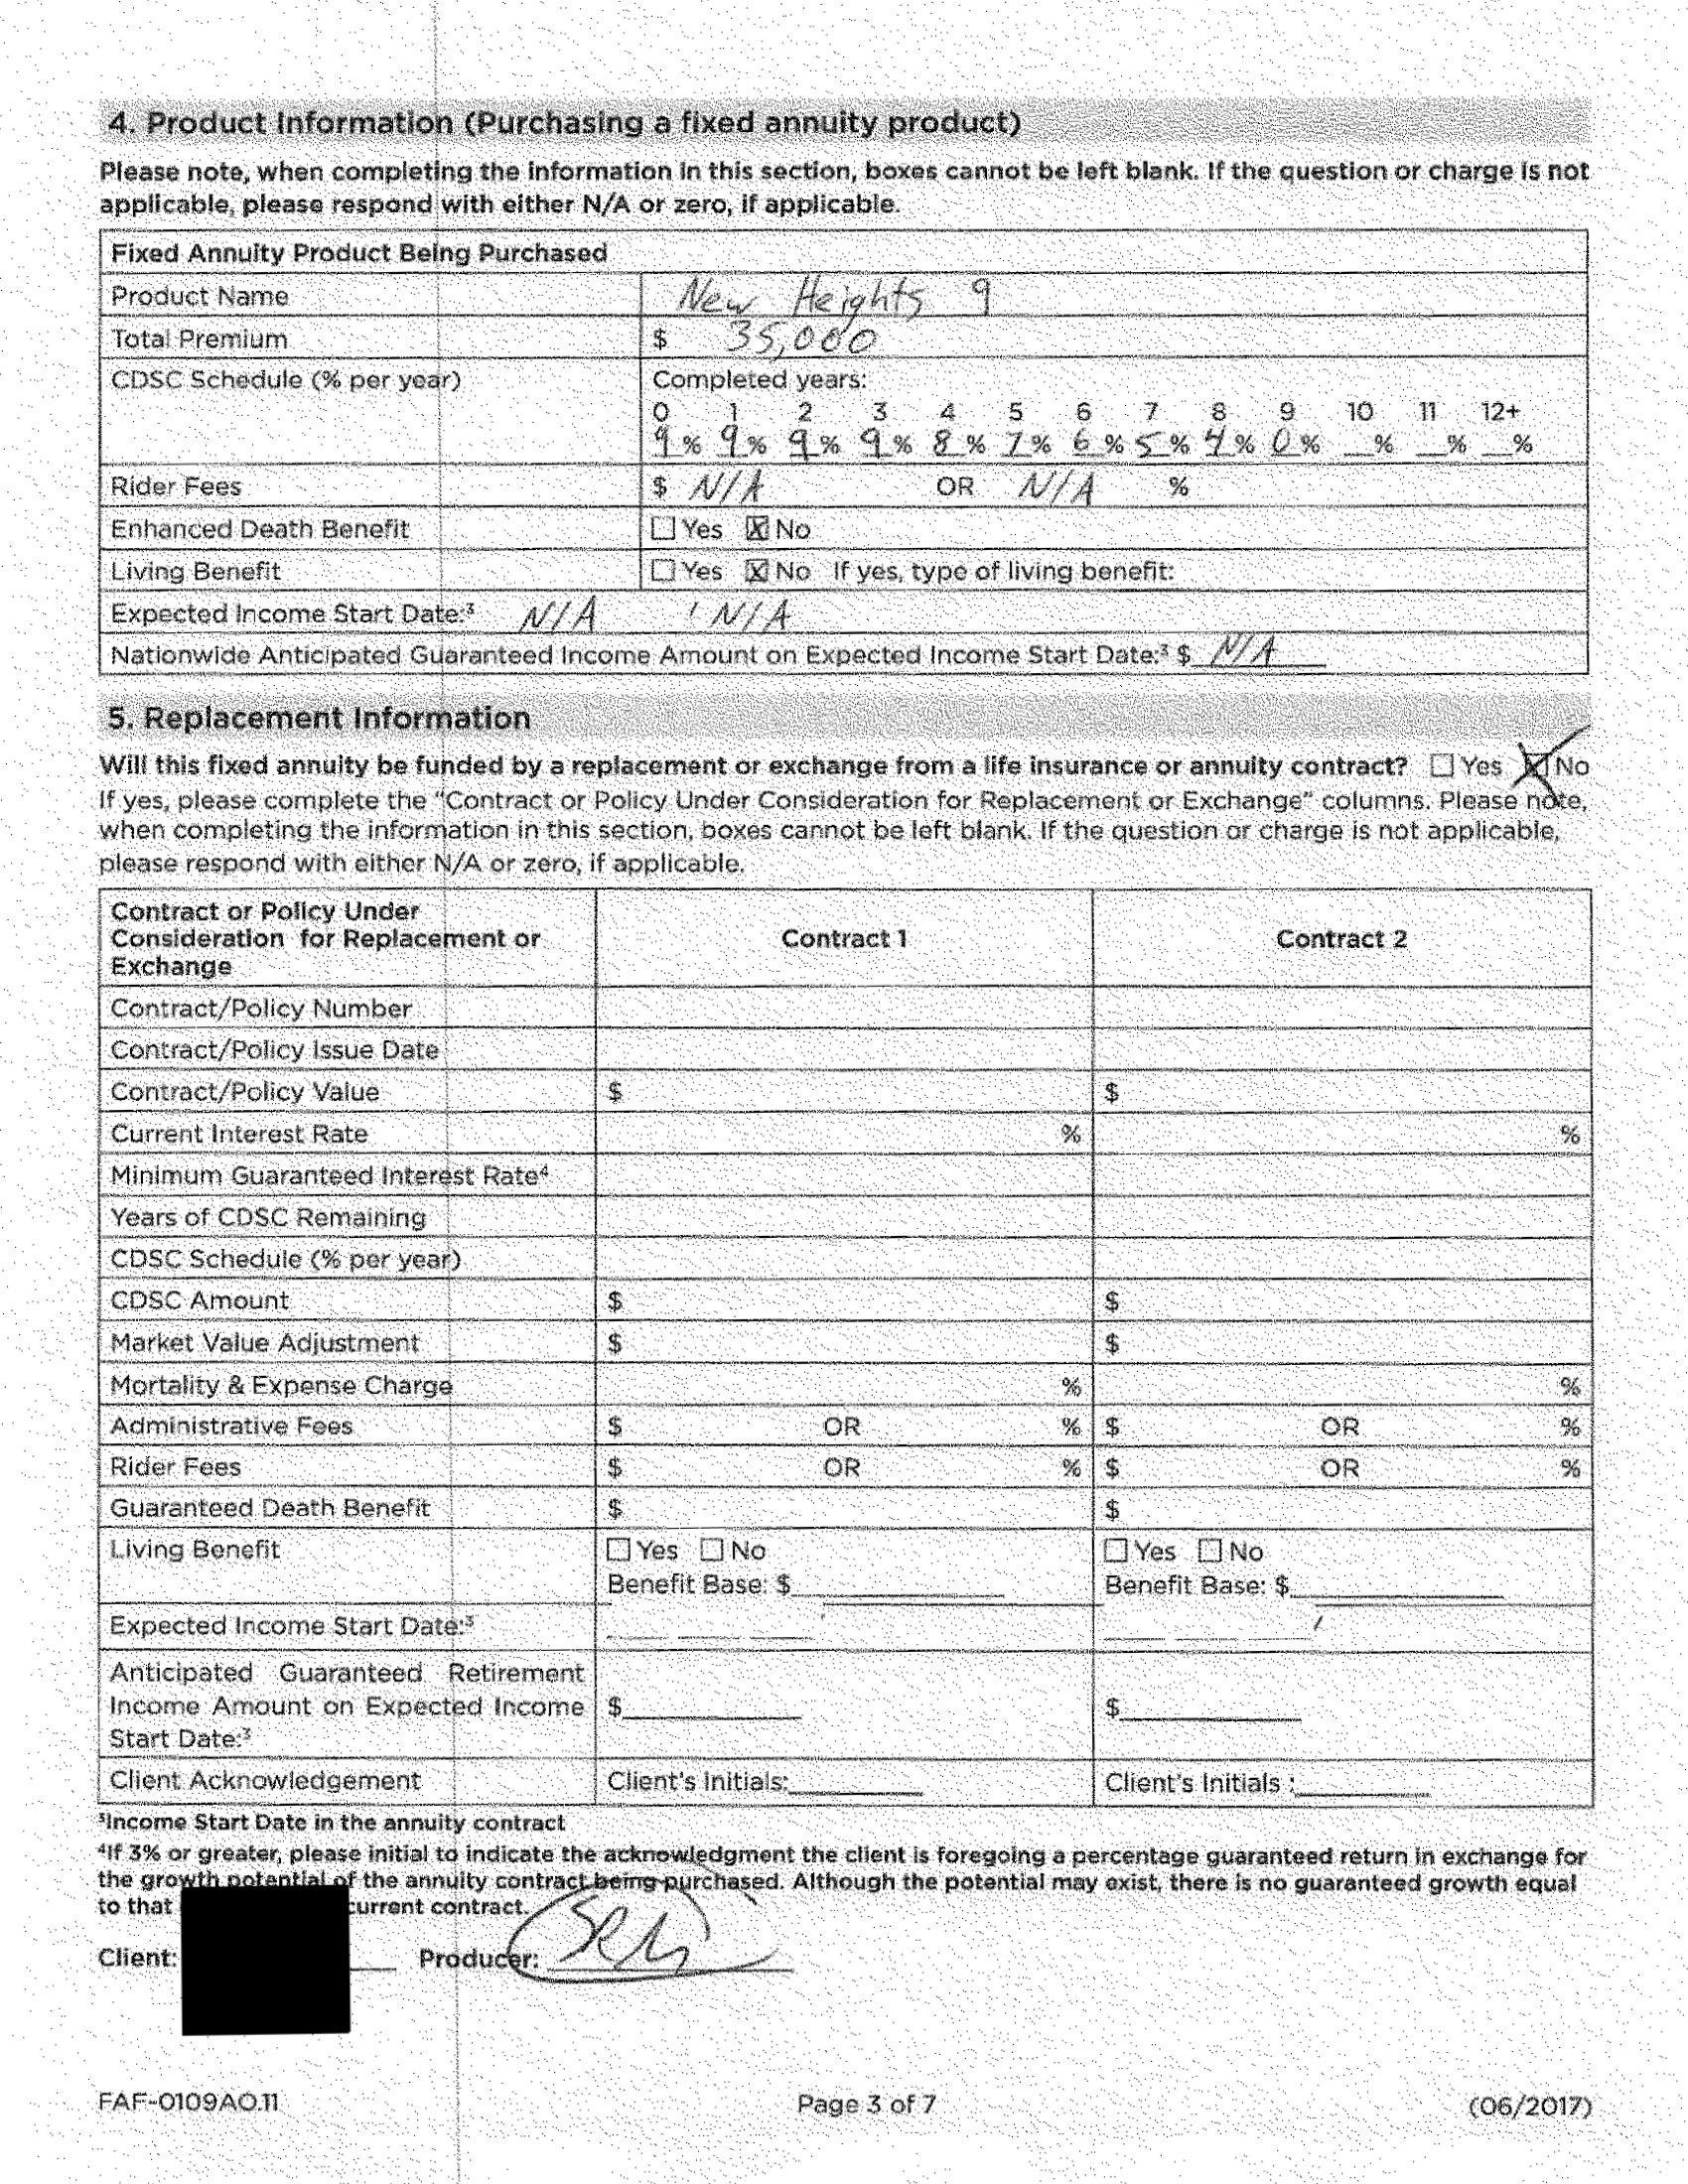 4. Product Information (Purchasing a fixed annuity product)
Please note, when completing the information in this section, boxes cannot be left blank. If the question or charge is not
applicable, please respond with either N/A or zero, if applicable.
Fixed Annuity Product Being Purchased
Product Name New Heights 9
Total Premium $ 35,000
CDSC Schedule (% per year) Completed years:
0 1 2 3 4 5 6 7 8 9 10 11 12+
9 % 9 % 9 % 9 % 8 % 7 % 6 % 5 % 4 % 0 % __% __% __%
Rider Fees $ N/A OR N/A %
Enhanced Death Benefit ☐ Yes ☒ No
Living Benefit ☐ Yes ☒ No If yes, type of living benefit:
Expected Income Start Date:³ N/A N/A
Nationwide Anticipated Guaranteed Income Amount on Expected Income Start Date:³ $ N/A
5. Replacement Information
Will this fixed annuity be funded by a replacement or exchange from a life insurance or annuity contract? ☐ Yes ☒ No
If yes, please complete the "Contract or Policy Under Consideration for Replacement or Exchange" columns. Please note,
when completing the information in this section, boxes cannot be left blank. If the question or charge is not applicable,
please respond with either N/A or zero, if applicable.
Contract or Policy Under
Consideration for Replacement or Contract 1 Contract 2
Exchange
Contract/Policy Number
Contract/Policy Issue Date
Contract/Policy Value $ $
Current Interest Rate % %
Minimum Guaranteed Interest Rate⁴
Years of CDSC Remaining
CDSC Schedule (% per year)
CDSC Amount $ $
Market Value Adjustment $ $
Mortality & Expense Charge % %
Administrative Fees $ OR % $ OR %
Rider Fees $ OR % $ OR %
Guaranteed Death Benefit $ $
Living Benefit ☐ Yes ☐ No ☐ Yes ☐ No
Benefit Base: $ Benefit Base: $
Expected Income Start Date:³
Anticipated Guaranteed Retirement
Income Amount on Expected Income $ $
Start Date:³
Client Acknowledgement Client's Initials: Client's Initials :
³Income Start Date in the annuity contract
⁴If 3% or greater, please initial to indicate the acknowledgment the client is foregoing a percentage guaranteed return in exchange for
the growth potential of the annuity contract being purchased. Although the potential may exist, there is no guaranteed growth equal
to that current contract.
Client: Producer:
FAF-0109AO.11 Page 3 of 7 (06/2017)